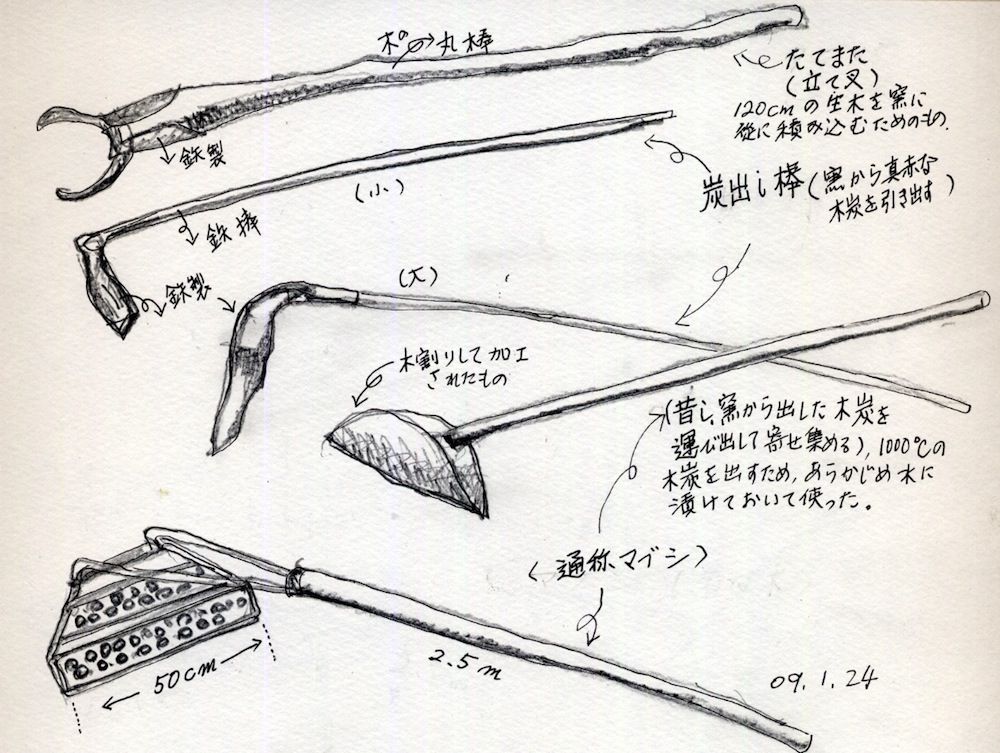 木の丸棒
たてまた
(立て叉)
120cmの生木を窯に
縦に積み込むためのもの.
鉄製
(小)
炭出し棒(窯から真赤な
木炭を引き出す)
鉄棒
鉄製
(大)
木割りして加工
されたもの
(昔し、窯から出した木炭を
運び出して寄せ集める), 1000℃の
木炭を出すため, あらかじめ水に
漬けておいて使った。
(通称マブシ)
50cm
2.5m
09.1.24